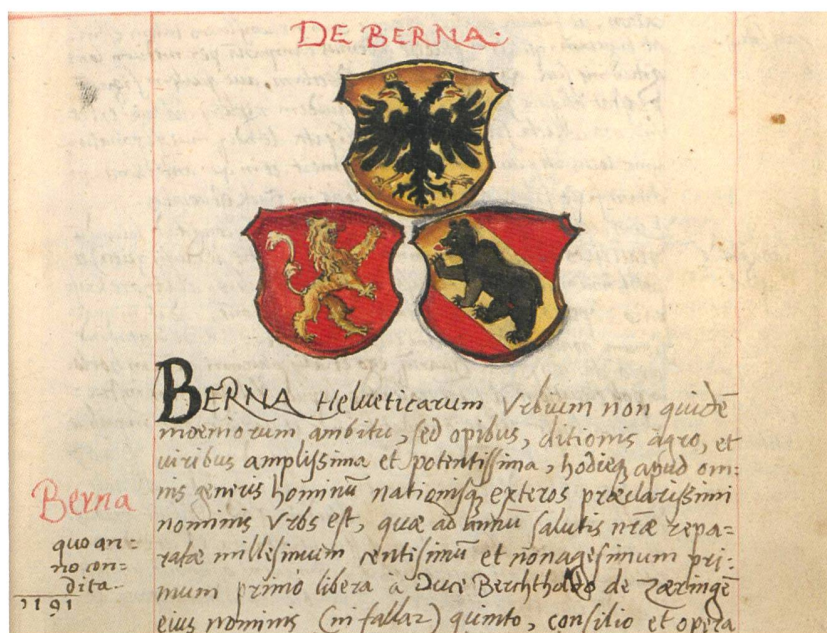 DE BERNA.
BERNA Helveticarum Urbium non quidē
moeniorum ambitu, sed opibus, ditionis agro, et
viribus amplissima et potentissima, hodieq; apud om=
nis generis hominū nationisq; exteros præclarissimi
nominis Vrbs est, quæ ad annū salutis nr̄æ repa=
ratæ millesimum centisimū et nonagesimum pri=
mum primo libera à Duce Berchthaldo de Zæringē
eius nominis (ni fallar) quinto, consilio et opera
Berna
quo an=
no con=
dita.
1191